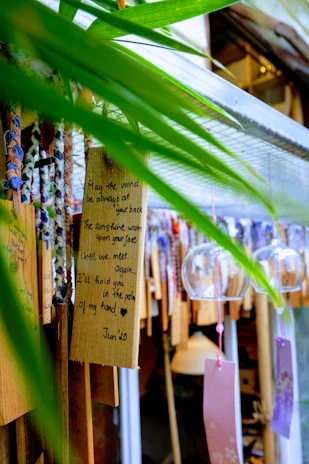 May the wind
be always at
your back
The sunshine warm
upon your face
Until we meet
again...
I'll hold you
in the palm
of my hand ♥
Jun '20